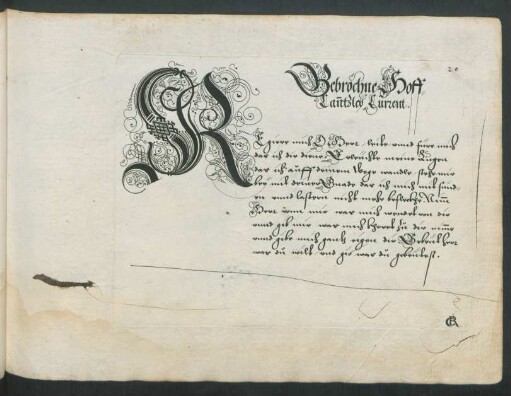 Gebrochne Hoff
Cantzley Current.
Regiere mich O Herr, leite und füre mich
das ich dir diene Erleuchte meine Augen
das ich auff deinem Wege wandle, stehe mir
bey mit deiner Gnade das ich mich mit sünd-
en unnd lastern nicht mehr beflecke Nim
Herr von mir was mich wendet von dir
unnd gib mir was mich kheret zu dir nim
unnd gibe mich gantz eigen dir
was du wilt, und gib was du gebeutest.